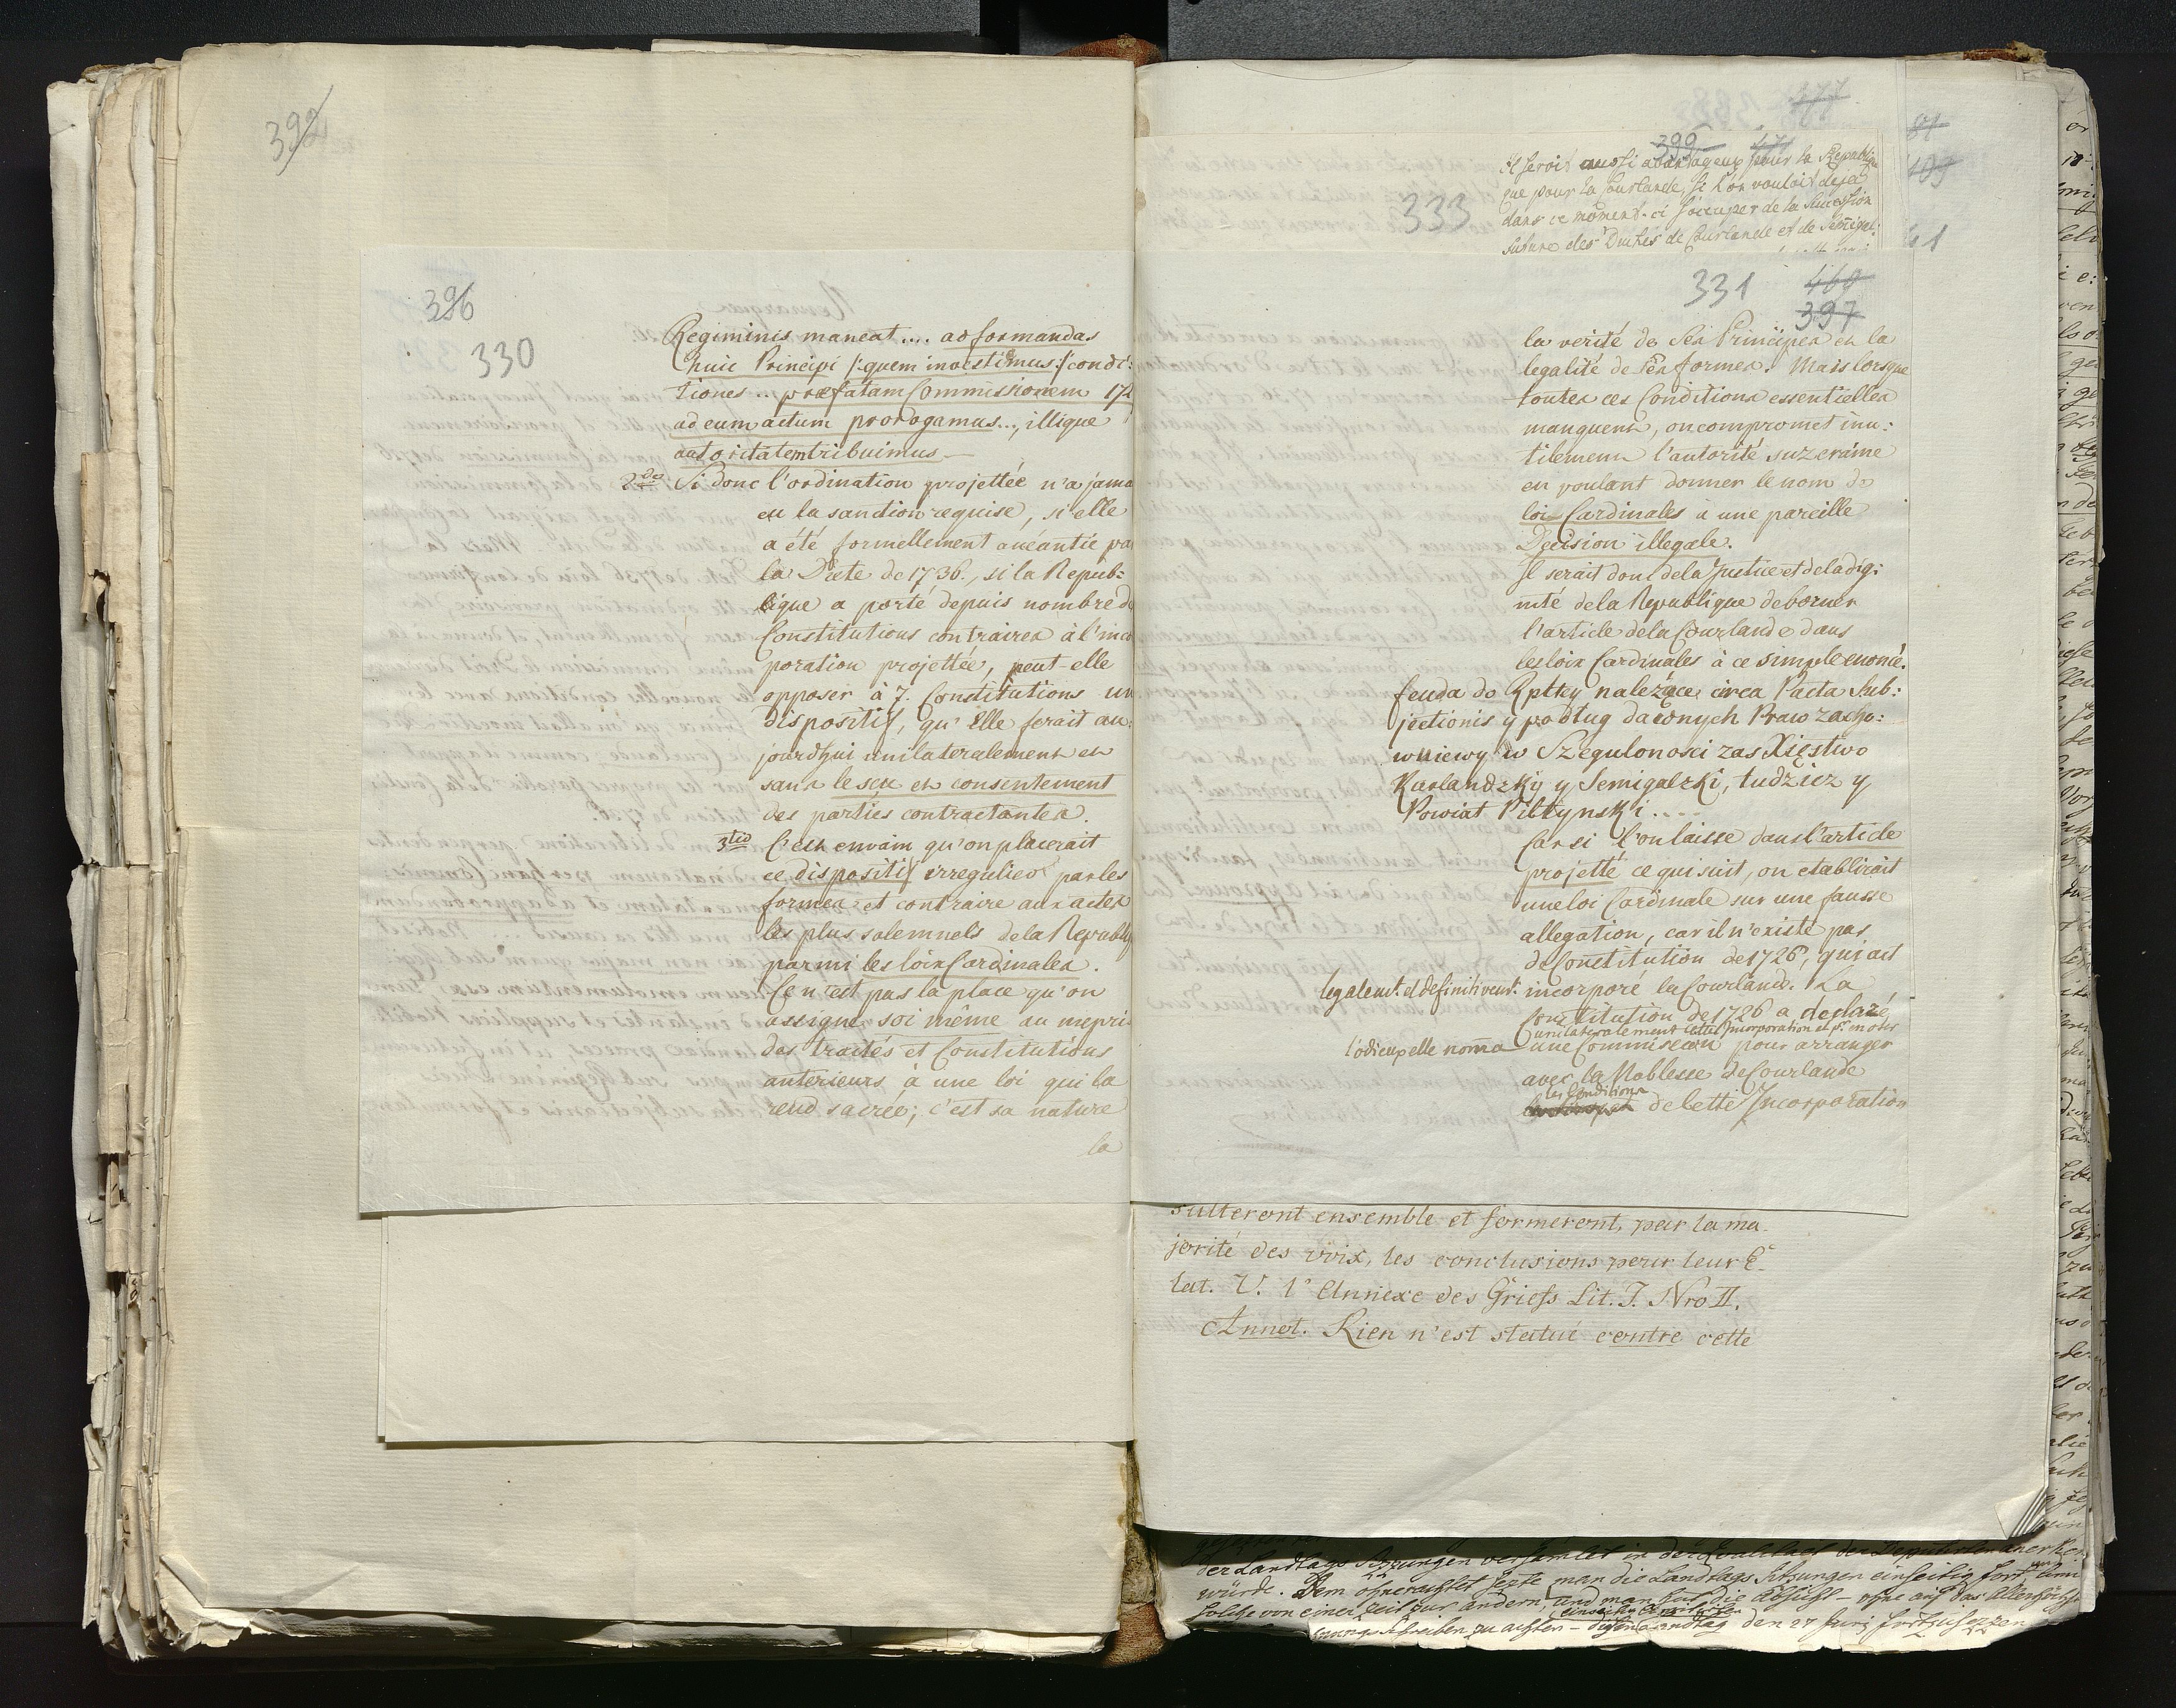 392
396
330
Regiminis maneat .... ad formandas
huic Principi /: quem investimus :/ condi:
tiones ... præfatam Commissionem 172
ad eum actum prorogamus ..., illique
autoritatem tribuimus —
2do Si donc l'ordination projettée n'a jama
eu la sanction requise, si elle
a été formellement anéantie pa
la Diete de 1736., si la Repub:
lique a porté depuis nombre de
Constitutions contraires à l'inco
poration projettée, peut-elle
opposer à 7. Constitutions un
dispositif, qu'Elle ferait au:
jourdhui unilateralement et
sans le sçu et consentement
des parties contractantes.
3tio C'est envain qu'on placerait
ce dispositif irregulier par les
formes et contraire aux actes
les plus solemnels de la Republiq
parmi les loix Cardinales.
Ce n'est pas la place qu'on
assigne soi même au mepri
des traités et Constitutions
anterieurs à une loi qui la
rend sacrée; c'est sa nature
la
477
399 471
81
409
41
333
Il seroit aussi avantageux pour la Republi
que pour la Courlande, si l'on vouloit deja
dans ce moment-ci s'occuper de la Succession
future des Duchés de Courlande et de Semigal:
331 460
397
la verité de ses Principes et la
legalité de ses formes. Mais lorsque
toutes ces Conditions essentielles
manquent, on compromet inu:
tilement l'autorité suzeraine
en voulant donner le nom de
loi Cardinales à une pareille
Decision illegale.
Il serait donc de la Justice et de la dig:
nité de la Republique de borner
l'article de la Courlande dans
les loix Cardinales à ce simple enoncé.
feuda do Rpltey należące circa Pacta Sub:
jectionis y podług dawnych Praw zacho:
wuiewy w Szegulonosci zas Xięstwo
Kurlandzky y Semigalzki, tudziez y
Powiat Piltynski ....
Car si l'on laisse dans l'article
projetté ce qui suit, on etablirait
une loi Cardinale sur une fausse
allegation, car il n'existe pas
de Constitution de 1726, qui ait
legalemt. et definitivemt. incorporé la Courlande. La
Constitution de 1726 a declaré
unilateralement cette Incorporation et
nomma une Commission pour arranger
avec la Noblesse de Courlande
les Conditions
de cette Incorporation
sulteront ensemble et formeront, par la ma-
jorité des voix, les conclusions pour leur E-
tat. V. l'Annexe des Griefs Lit. J. Nro II.
Annot. Rien n'est statué contre cette
der Landtags Sitzungen versamlet in der
würde. Dem ohnerachtet sezte man die Landtags Sitzungen einseitig fort, und
solche von einer Zeit zur andern, und man hat die Absicht — ohne auf das Allerhöchste
zu achten — diesen Landtag den 27 Junj fortzusezzen